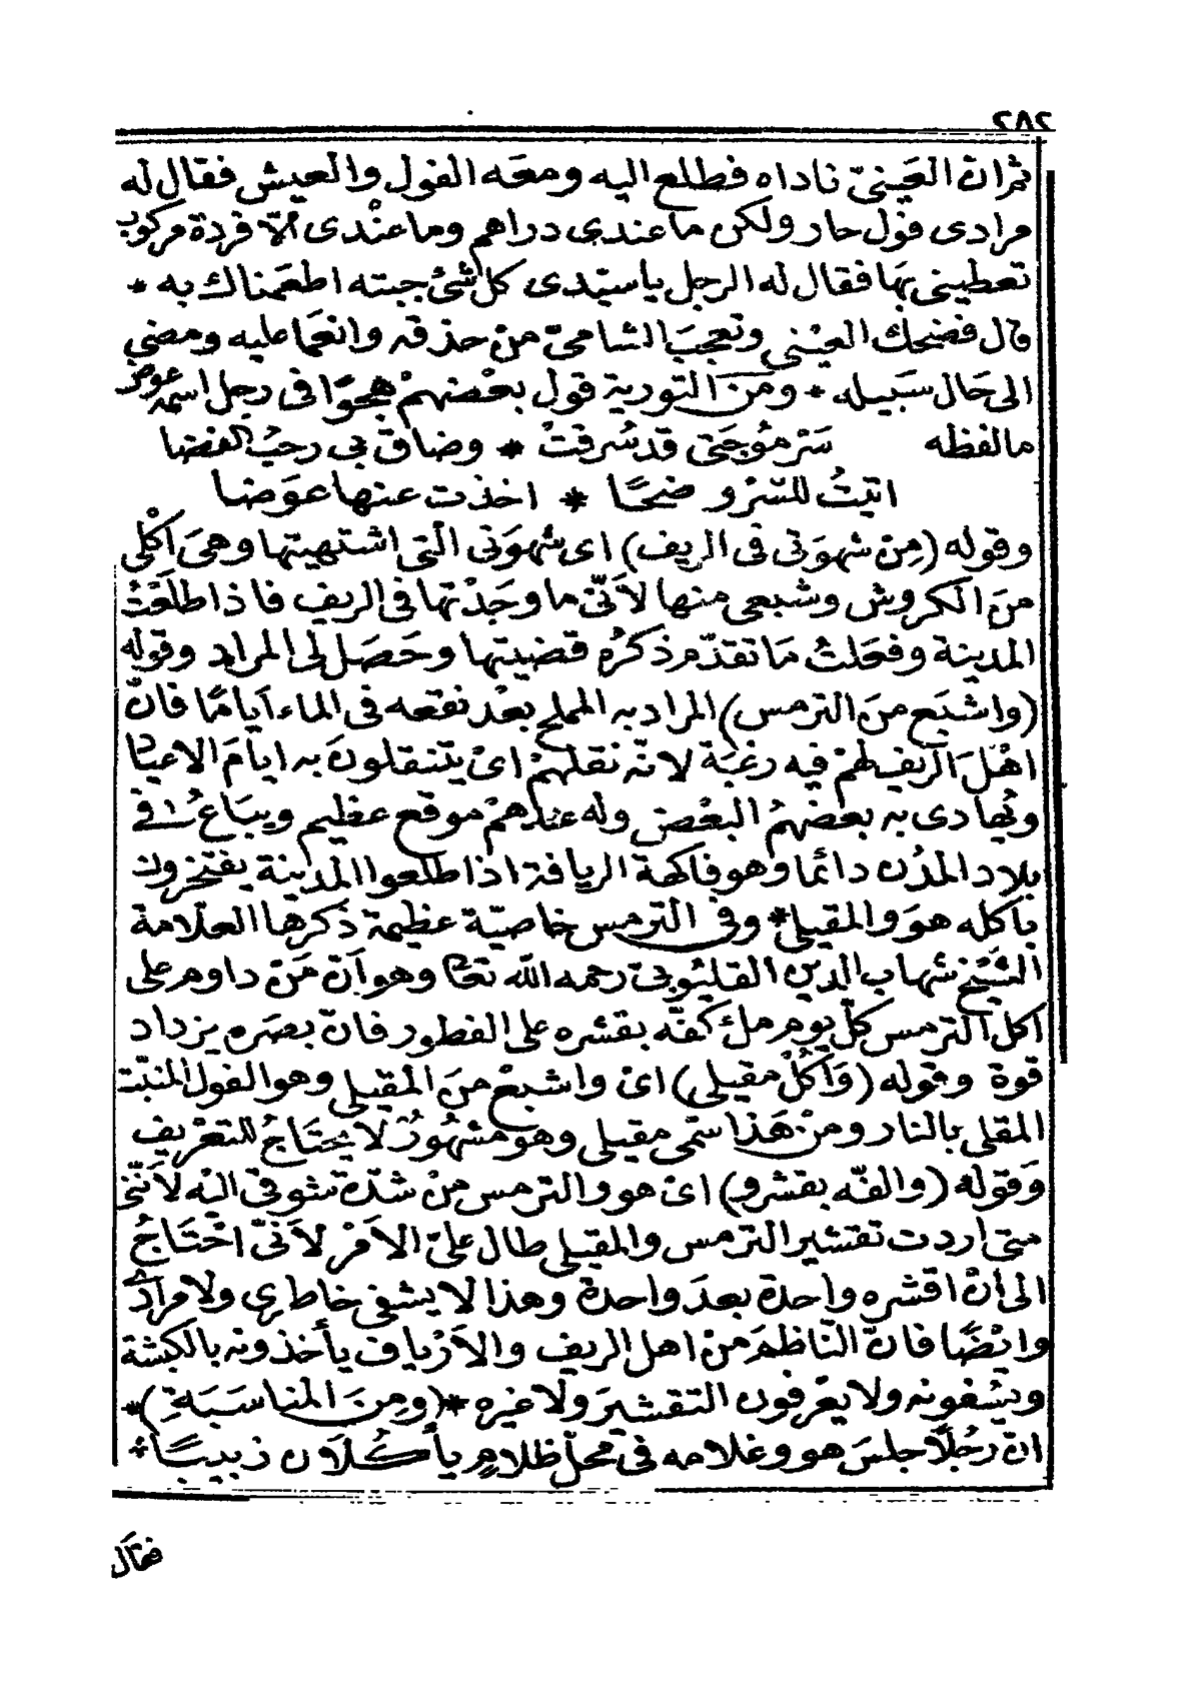 ٢٨٢
ثم ان العَينىّ ناداه فطلع اليه ومعَه الفول والعيش فقال له
مرادى فول حار ولكن ما عندى دراهم وما عنْدى الّا فردة مركوب
تعطينى بهَا فقال له الرجل يا سيّدى كل شئ جبته اطعَمناك به *
قال فضحك العينى وتعجبَ الشامىّ منْ حذقه وانعَما عليه ومضى
الى حَال سَبيله * ومنَ التورية قول بعْضهمْ هجْوًا فى رجل اسمه عوض
ما لفظه سَرْ مُوجَتى قد سُرقتْ * وضاق بى رحبُ الفضا
اتيتُ للسّرْو ضحًا * اخذت عنها عوَضا
وقوله (مِنْ شهوَتى فى الريف) اى شهوَتى الّتى اشتهيتها وهىَ اكْلى
منَ الكروش وشبعى منها لأنّى ما وجَدْتها فى الريف فاذا طلَعْتُ
المدينة وفعَلتُ مَا تقدّم ذكرُه قضيتها وحَصَل لى المراد وقوله
(واشبَع منَ الترمس) المراد به المملح بعْد نقعه فى الماء ايامًا فانّ
اهْل الريف لهمْ فيه رغبَة لانّه نقلهمْ اىْ يتنقلونَ به ايامَ الاعياد
وتُهادى به بعضهمُ البعْض وله عندهمْ موقع عظيم ويبَاعُ فى
بلاد المدُن دائما وهو فاكهة الريافة اذا طلعوا المدينة يفتخرون
باكله هوَ والمقيلى * وفى الترمس خاصيّة عظيمة ذكرها العلامة
الشّيْخ شهاب الدين القليُوبى رحمه الله تعَا وهو انّ مَن داوم على
اكل الترمس كلّ يوم ملء كفّه بقشره على الفطور فانّ بصَره يزداد
قوة وقوله (وَاكُلْ مقيلى) اىْ واشبعْ منَ المقيلى وهو الفول المنبّت
المقلى بالنار ومنْ هَذا سمّى مقيلى وهوَ مشهُورٌ لا يحتَاجُ للتعْريف
وَقوله (والفّه بقشرو) اىْ هو والترمس منْ شدّة تشوقى اليْه لأنّنى
متى اردت تقشير الترمس والمقيلى طال علىّ الأمْر لأنىّ احْتَاجُ
الى أنْ اقشره واحدة بعدَ واحدة وهذا لا يشفى خاطرى ولا مرادى
وايْضًا فانّ النّاظمَ منْ اهل الريف والأرْياف يأخذونه بالكبشة
ويَسْفونه ولا يعْرفون التقشيرَ ولا غيره * (ومِنَ المناسَبَةِ) *
انّ رجُلًا جلسَ هو وغلامه فى محلّ ظلامٍ يأكُلَان زبيبًا *
فقال